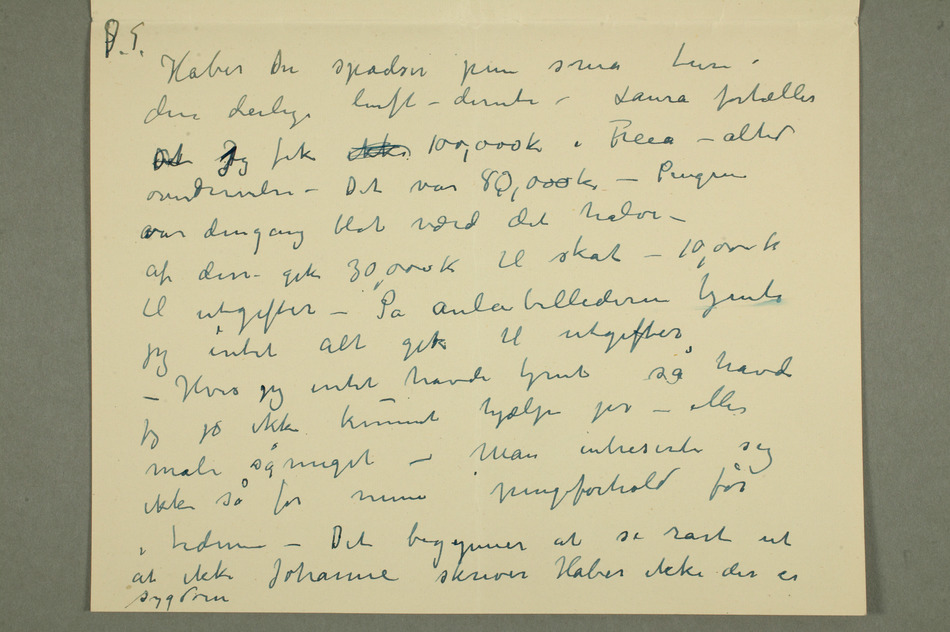 P.S.
Håber Du spadser pene små ture i
den deilige luft – derute – Laura fortæller
Det Jeg fik ikke 100,000k i Freia – altid
overdrivelse – Det var 80,000k – Pengene
var dengang blot værd det halve –
af dem gik 30,000k til skat – 10,000k
til utgifter – På aulabillederne tjente
jeg intet alt gik til utgifter
– Hvis jeg intet havde tjent så havde
jeg jo ikke kunnet hjælpe jer – eller
male såmeget – Man interesserte seg
ikke så for mine pengeforhold før
i tiderne – Det begynner at se rart ut
at ikke Johanne skriver Håber ikke der er
sygdom